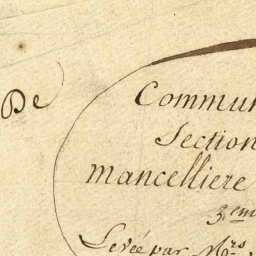 De
Commun
Section
mancelliere
3.em
Levée par M.rs